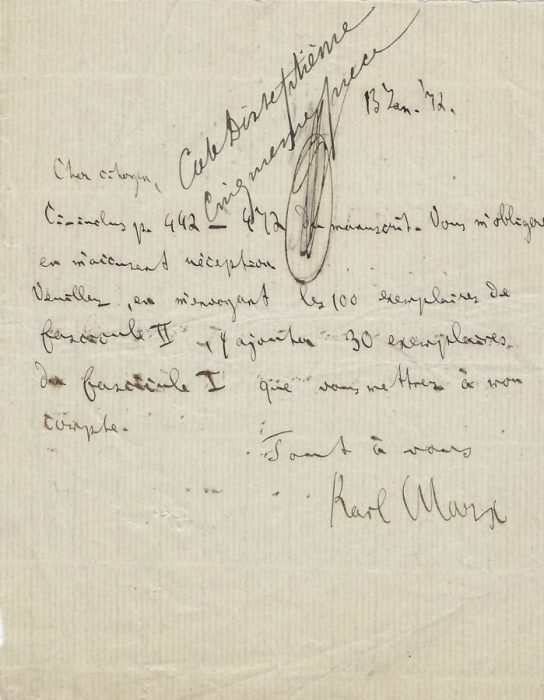 Cote Dixseptième
Cinquieme piece
13 Jan. '72.
Cher citoyen,
Ci-inclus p. 442 – 472 du manuscrit. Vous m'obligere
en m'accusent réception
Veuillez, en m'envoyant les 100 exemplaires de
fascicule II, y ajouter 30 exemplaires
du fascicule I que vous mettrez à mon
compte.
Tout à vous
Karl Marx